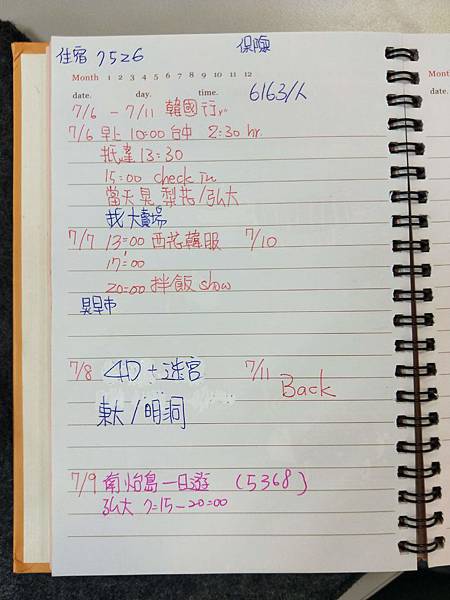 住宿 7526
保險
Month 1 2 3 4 5 6 7 8 9 10 11 12
date. day. time.
6163/人
7/6 - 7/11 韓國行
7/6 早上 10:00 台中 2:30 hr.
抵達 13:30
15:00 check in
當天晃 梨花/弘大
找大賣場
7/7 13:00 西花韓服 7/10
17:00
20:00 拌飯 show
晃早市
7/8 4D + 迷宮 7/11
Back
東大/明洞
7/9 南怡島一日遊 (5368)
弘大 7:15-20:00
Month
date.